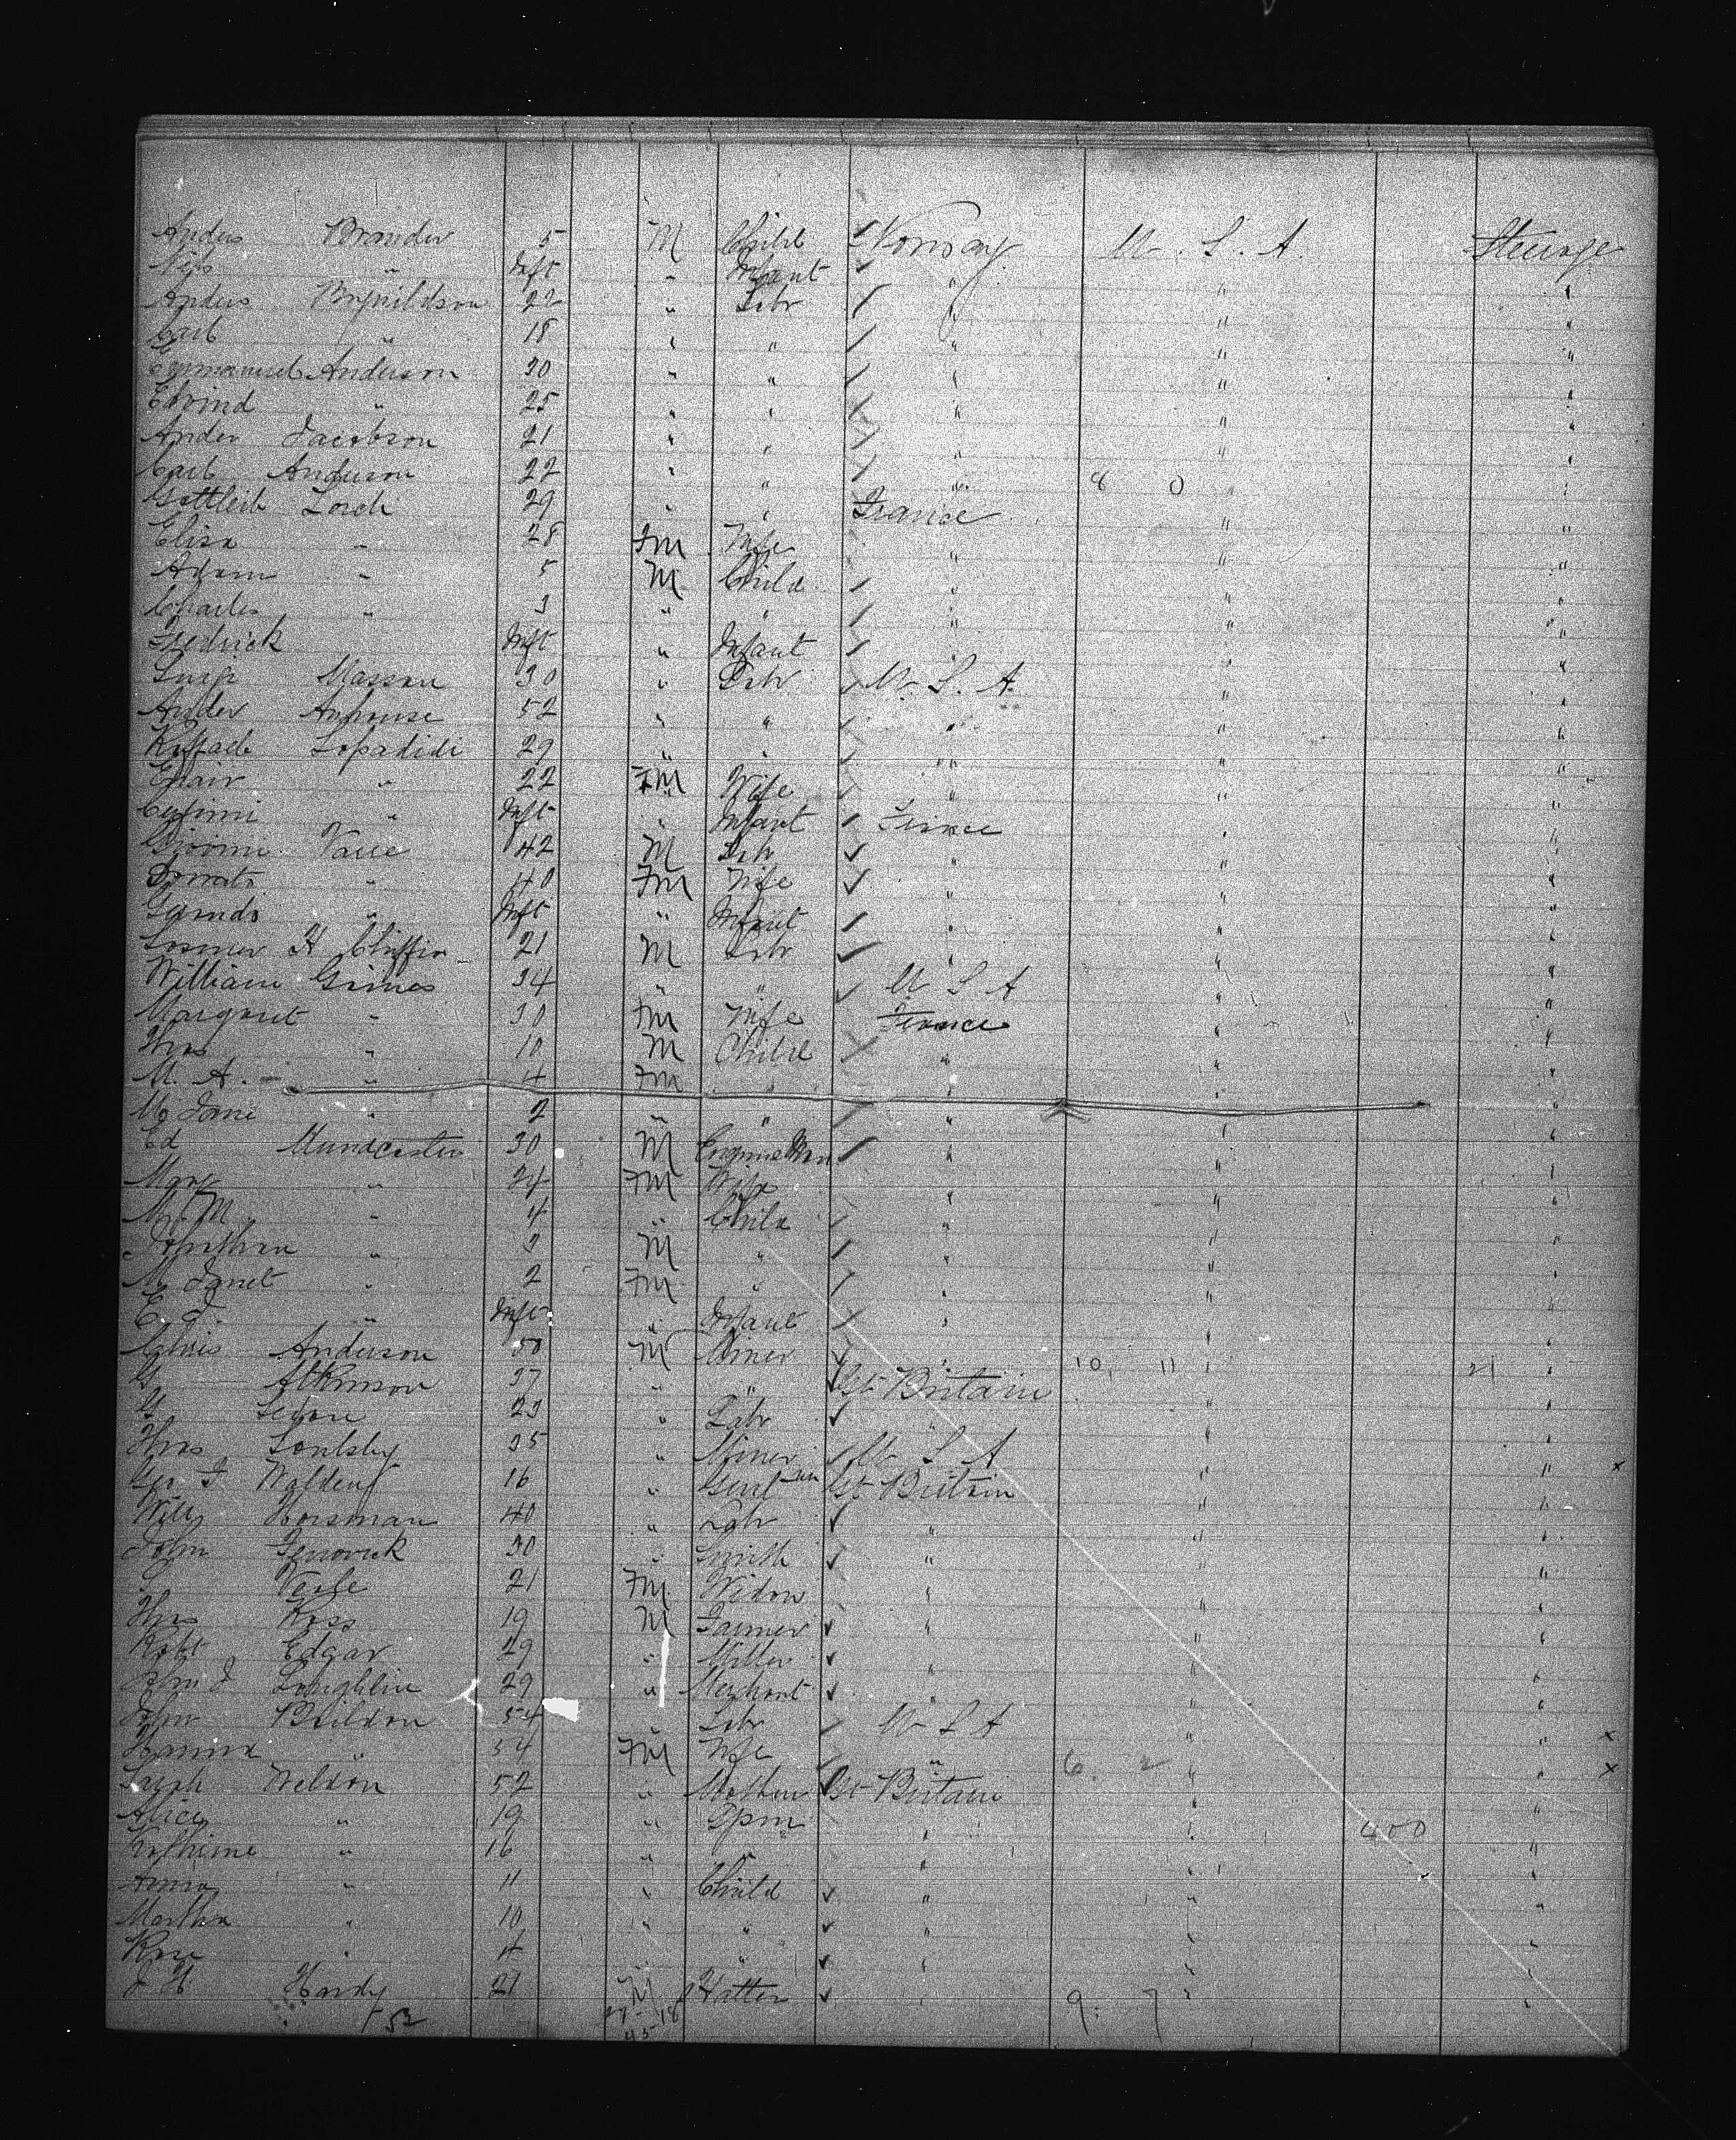 Anders Brander 5 M Child Norway U. S. A. Steerage
Nils " Inft " Infant " " "
Anders Brynildson 22 " Lbr " " "
Carl " 18 " " " " "
Emmanuel Anderson 20 " " " " "
Eivind " 25 " " " " "
Ander Jacobson 21 " " " " "
Carl Anderson 22 " " " 8 0 " "
Gottleib Lorch 29 " " France " "
Elisa " 28 Fm Wife " " "
Adam " 5 M Child " " "
Charles " 3 " " " " "
Fredrick Inft " Infant " " "
Masson 30 " Lbr U. S. A. " "
Ander 52 " " " " "
Raffaele Lopadidi 29 " " " " "
22 Fm Wife " " "
" Inft " Infant France " "
Varre 42 M Lbr " " "
Donato " 40 Fm Wife " " "
" Inft " Infant " " "
H 21 M Lbr " " "
William Grimes 34 " " U S A " "
Margaret " 30 Fm Wife France " "
Thos " 10 M Child " " "
M. A. " 4 Fm " " " "
M Jane " 2 " " " " "
Ed Muncaster 30 M Engine Man " " "
Mary " 24 Fm Wife " " "
M. M " 4 " Child " " "
Johnathan " 3 M " " " "
M Janet " 2 Fm " " " "
E. J. " Inft " Infant " " "
Chris Anderson 50 M Miner " 10, 11 " 21 "
G Atkinson 37 " " Gt Britain " "
23 " Labr " " "
Thos Soulsby 35 " Miner U S A " "
Geo. F Walden 16 " Gentman Gt Britain " " x
Will Horsman 40 " Labr " " "
John Fenwick 30 " Smith " " "
21 Fm Widow " " "
Thos Ross 19 M Farmer " " "
Robt Edgar 29 " Miller " " "
John J Loughlin 29 " Merchant " " "
John Buildon 54 " Lbr U S A " "
Hanna " 54 Fm Wife " 6. 2 " " x
Sarah Weldon 52 " Mother Gt Britain " " x
Alice " 19 " Spin " " 400
Catherine " 16 " " " " "
Anna " 11 " Child " " "
Martha " 10 " " " " "
Rose " 4 " " " " "
J H Hardy 21 M Hatter " 9. 7 " "
52 18
45